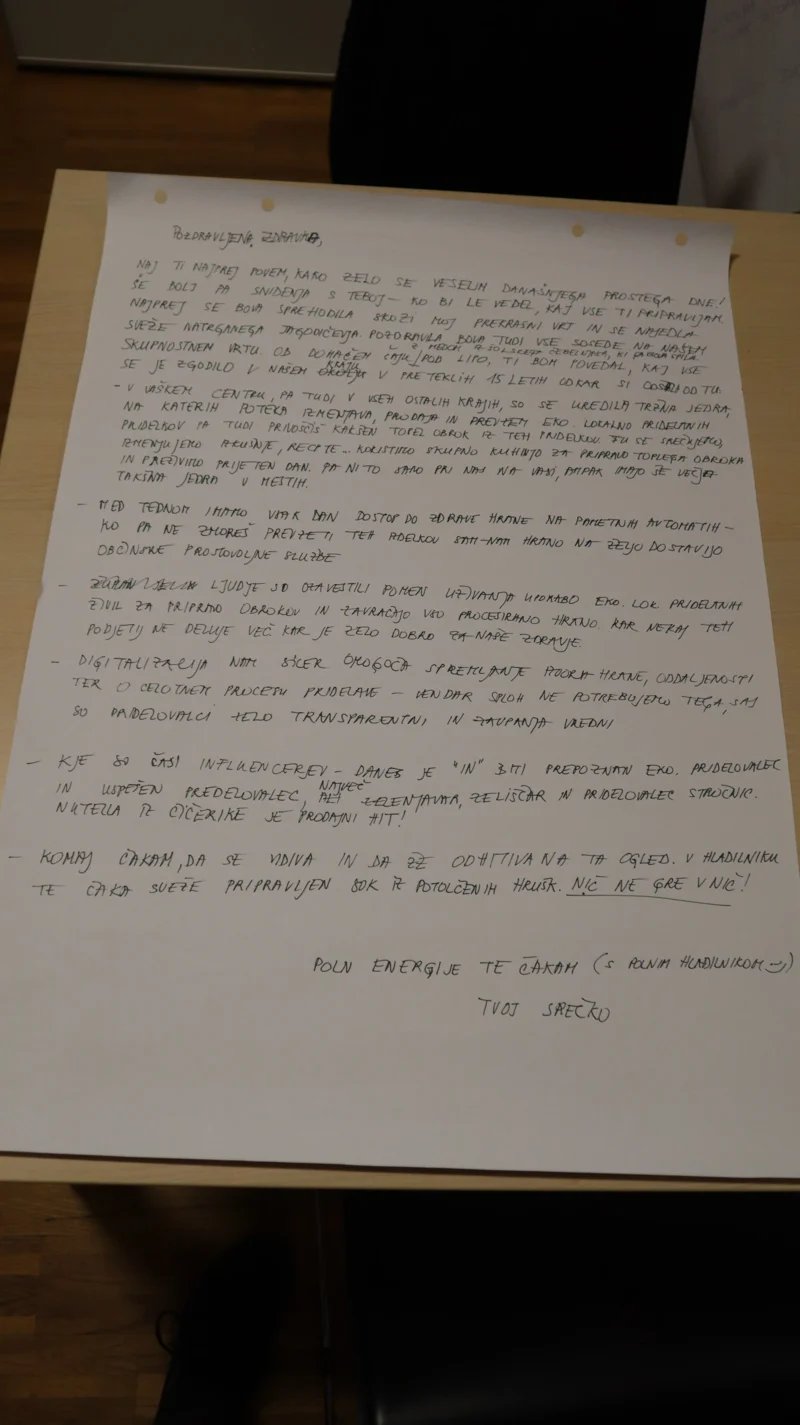 POZDRAVLJENA ZDRAVKA,
NAJ TI NAJPREJ POVEM, KAKO ZELO SE VESELIM DANAŠNJEGA PROSTEGA DNE!
ŠE BOLJ PA SNIDENJA S TEBOJ – KO BI LE VEDEL, KAJ VSE TI PRIPRAVLJAM.
NAJPREJ SE BOVA SPREHODILA SKOZI MOJ PREKRASNI VRT IN SE NAJEDLA
SVEŽE NATRGANEGA JAGODIČEVJA. POZDRAVILA BOVA TUDI VSE SOSEDE NA NAŠEM
Z MEDOM IZ ŠOLSKEGA ČEBELNJAKA, KI
SKUPNOSTNEM VRTU. OB DOMAČEM ČAJU POD LIPO, TI BOM POVEDAL, KAJ VSE
KRAJU
SE JE ZGODILO V NAŠEM V PRETEKLIH 15 LETIH ODKAR SI ODŠEL OD TU.
– V VAŠKEM CENTRU, PA TUDI V VSEH OSTALIH KRAJIH, SO SE UREDILA TRŽNA JEDRA,
NA KATERIH POTEKA IZMENJAVA, PRODAJA IN PREVZEM EKO. LOKALNO PRIDELANIH
PRIDELKOV PA TUDI PRIVOŠČIŠ KAKŠEN TOPEL OBROK IZ TEH PRIDELKOV. TU SE SREČUJEMO,
IZMENJUJEMO IZKUŠNJE, RECEPTE... KORISTIMO SKUPNO KUHINJO ZA PRIPRAVO TOPLEGA OBROKA
IN PREŽIVIMO PRIJETEN DAN. PA NI TO SAMO PRI NAS NA VASI, AMPAK IMAJO ŠE VEČJA
TAKŠNA JEDRA V MESTIH.
– MED TEDNOM IMAMO VSAK DAN DOSTOP DO ZDRAVE HRANE NA PAMETNIH AVTOMATIH –
KO PA NE ZMOREŠ PREVZETI TEH IZDELKOV SAM – NAM HRANO NA ŽELJO DOSTAVIJO
OBČINSKE PROSTOVOLJNE SLUŽBE
– LJUDJE SO OZAVESTILI POMEN UŽIVANJA UPORABO EKO. LOK PRIDELANIH
ŽIVIL ZA PRIPRAVO OBROKOV IN ZAVRAČAJO VSO PROCESIRANO HRANO. KAR NEKAJ TEH
PODJETIJ NE DELUJE VEČ KAR JE ZELO DOBRO ZA NAŠE ZDRAVJE.
– DIGITALIZACIJA NAM SICER OMOGOČA SPREMLJANJE IZVORA HRANE, ODDALJENOSTI
TER O CELOTNEM PROCESU PRIDELAVE – VENDAR SPLOH NE POTREBUJEMO TEGA, SAJ
SO PRIDELOVALCI ZELO TRANSPARENTNI IN ZAUPANJA VREDNI
– KJE SO ČASI INFLUENCERJEV – DANES JE "IN" BITI PREPOZNAN EKO. PRIDELOVALEC
NAJVEČ
IN USPEŠEN PREDELOVALEC, ZELENJAVAR, ZELIŠČAR IN PRIDELOVALEC STROČNIC.
NUTELLA IZ ČIČERIKE JE PRODAJNI HIT!
– KOMAJ ČAKAM, DA SE VIDIVA IN DA ŽE ODHITIVA NA TA OGLED. V HLADILNIKU
TE ČAKA SVEŽE PRIPRAVLJEN SOK IZ POTOLČENIH HRUŠK. NIČ NE GRE V NIČ!
POLN ENERGIJE TE ČAKAM (S POLNIM HLADILNIKOM :))
TVOJ SREČKO